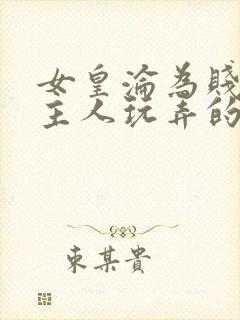 女皇淪為賤
主人玩弄的
東某貴